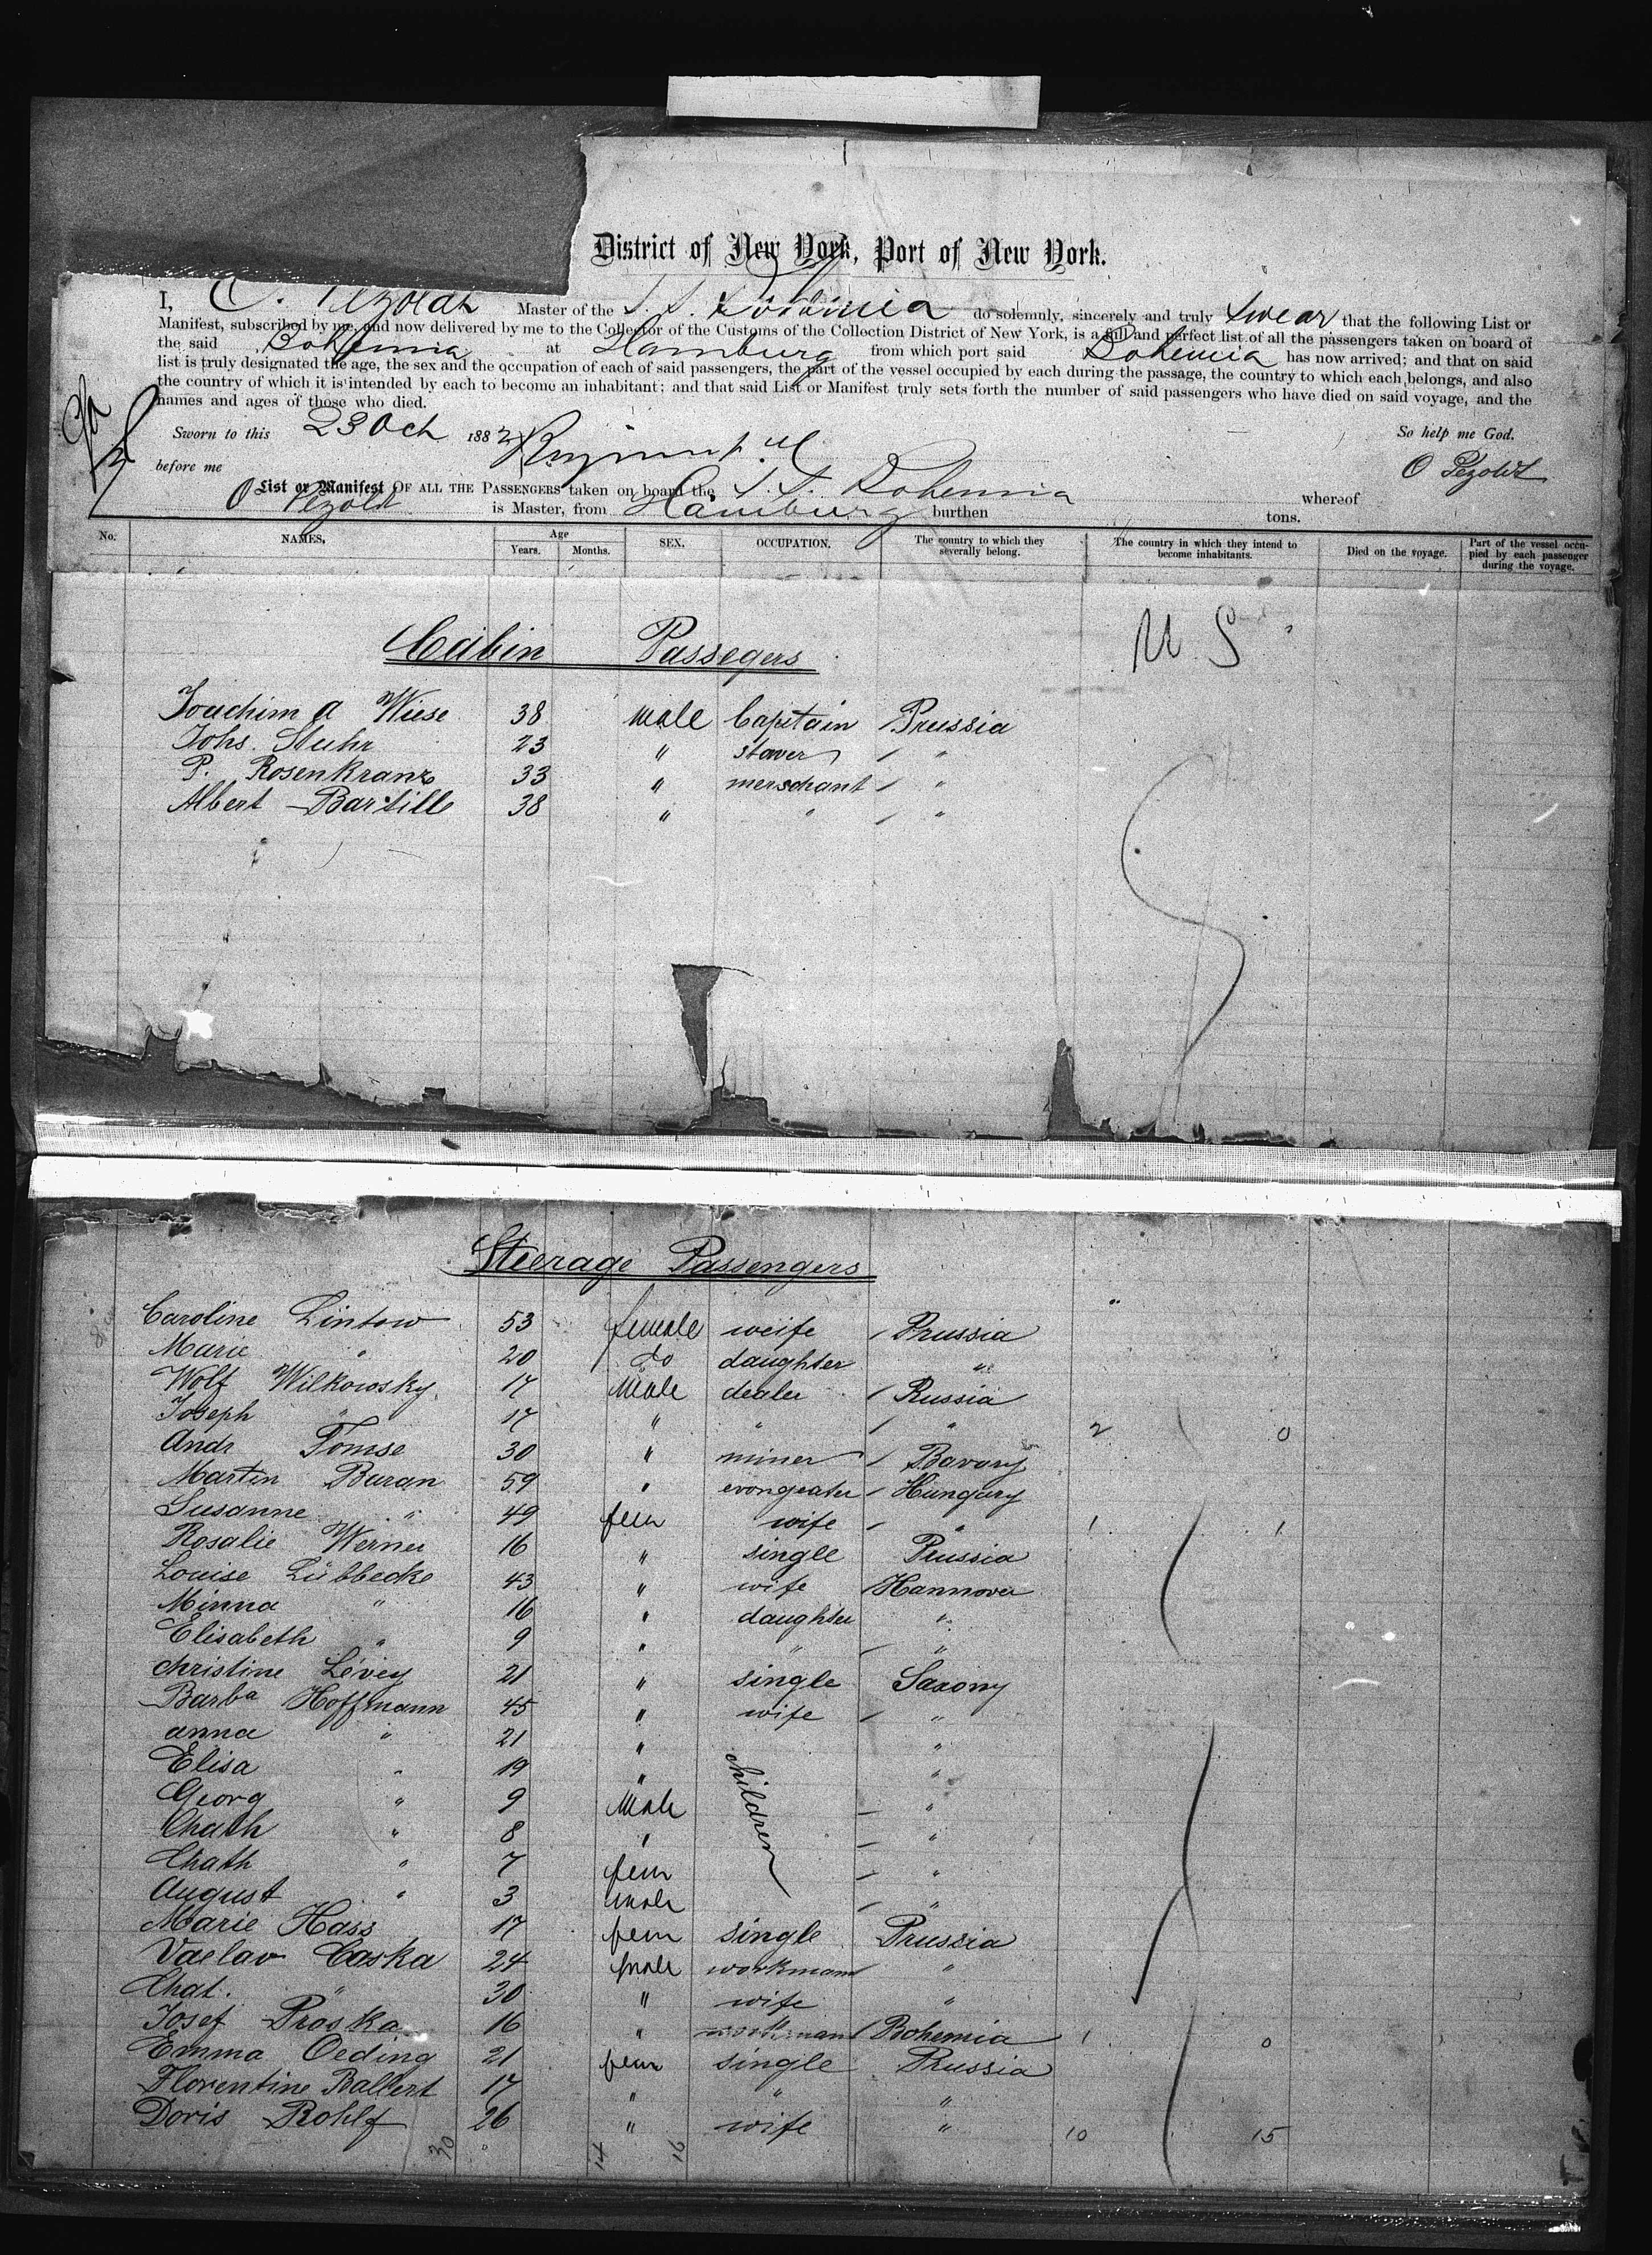 District of New York, Port of New York.
I, O. Pezoldt Master of the S. S. Bohemia do solemnly, sincerely and truly swear that the following List or
Manifest, subscribed by me, and now delivered by me to the Collector of the Customs of the Collection District of New York, is a full and perfect list of all the passengers taken on board of
the said Bohemia at Hamburg from which port said Bohemia has now arrived; and that on said
list is truly designated the age, the sex and the occupation of each of said passengers, the part of the vessel occupied by each during the passage, the country to which each belongs, and also
the country of which it is intended by each to become an inhabitant; and that said List or Manifest truly sets forth the number of said passengers who have died on said voyage, and the
names and ages of those who died.
Sworn to this 23 Oct 1882 So help me God.
before me O Pezoldt
List or Manifest OF ALL THE PASSENGERS taken on board the S. S. Bohemia whereof
O Pezoldt is Master, from Hamburg burthen tons.
No. NAMES. Age Years. Months. SEX. OCCUPATION. The country to which they severally belong. The country in which they intend to become inhabitants. Died on the voyage. Part of the vessel occupied by each passenger during the voyage.
Cabin Passegers U. S
Joachim A Wiese 38 male Capitain Prussia
Johs. Stuhr 23 " staver "
P. Rosenkranz 33 " merschant "
Albert Bartille 38 " " "
Steerage Passengers
Caroline Lintow 53 female weife Prussia
Marie " 20 do daughter "
Wolf Wilkowsky 17 Male dealer Russia
Joseph " 17 " " " 2 0
Andr Tomse 30 " miner Bavary
Martin Buran 59 " Hungary
Susanne " 49 fem wife " 1 1
Rosalie Werner 16 " single Prussia
Louise Lübbecke 43 " wife Hannover
Minna " 16 " daughter "
Elisabeth " 9 " " "
Christine Levey 21 " single Saxony
Barba Hoffmann 45 " wife "
Anna " 21 " children "
Elisa " 19 " "
Georg " 9 Male "
Chath " 8 " "
Chath " 7 fem "
August " 3 male "
Marie Hass 17 fem single Prussia
Vaclav Caska 24 male workmann "
Chat. " 30 " wife "
Josef Proska 16 " workmann Bohemia 1 0
Emma Oeding 21 fem single Prussia
Florentine Ballert 17 " " "
Doris Rohlf 26 " wife " 10 15
30 14 16